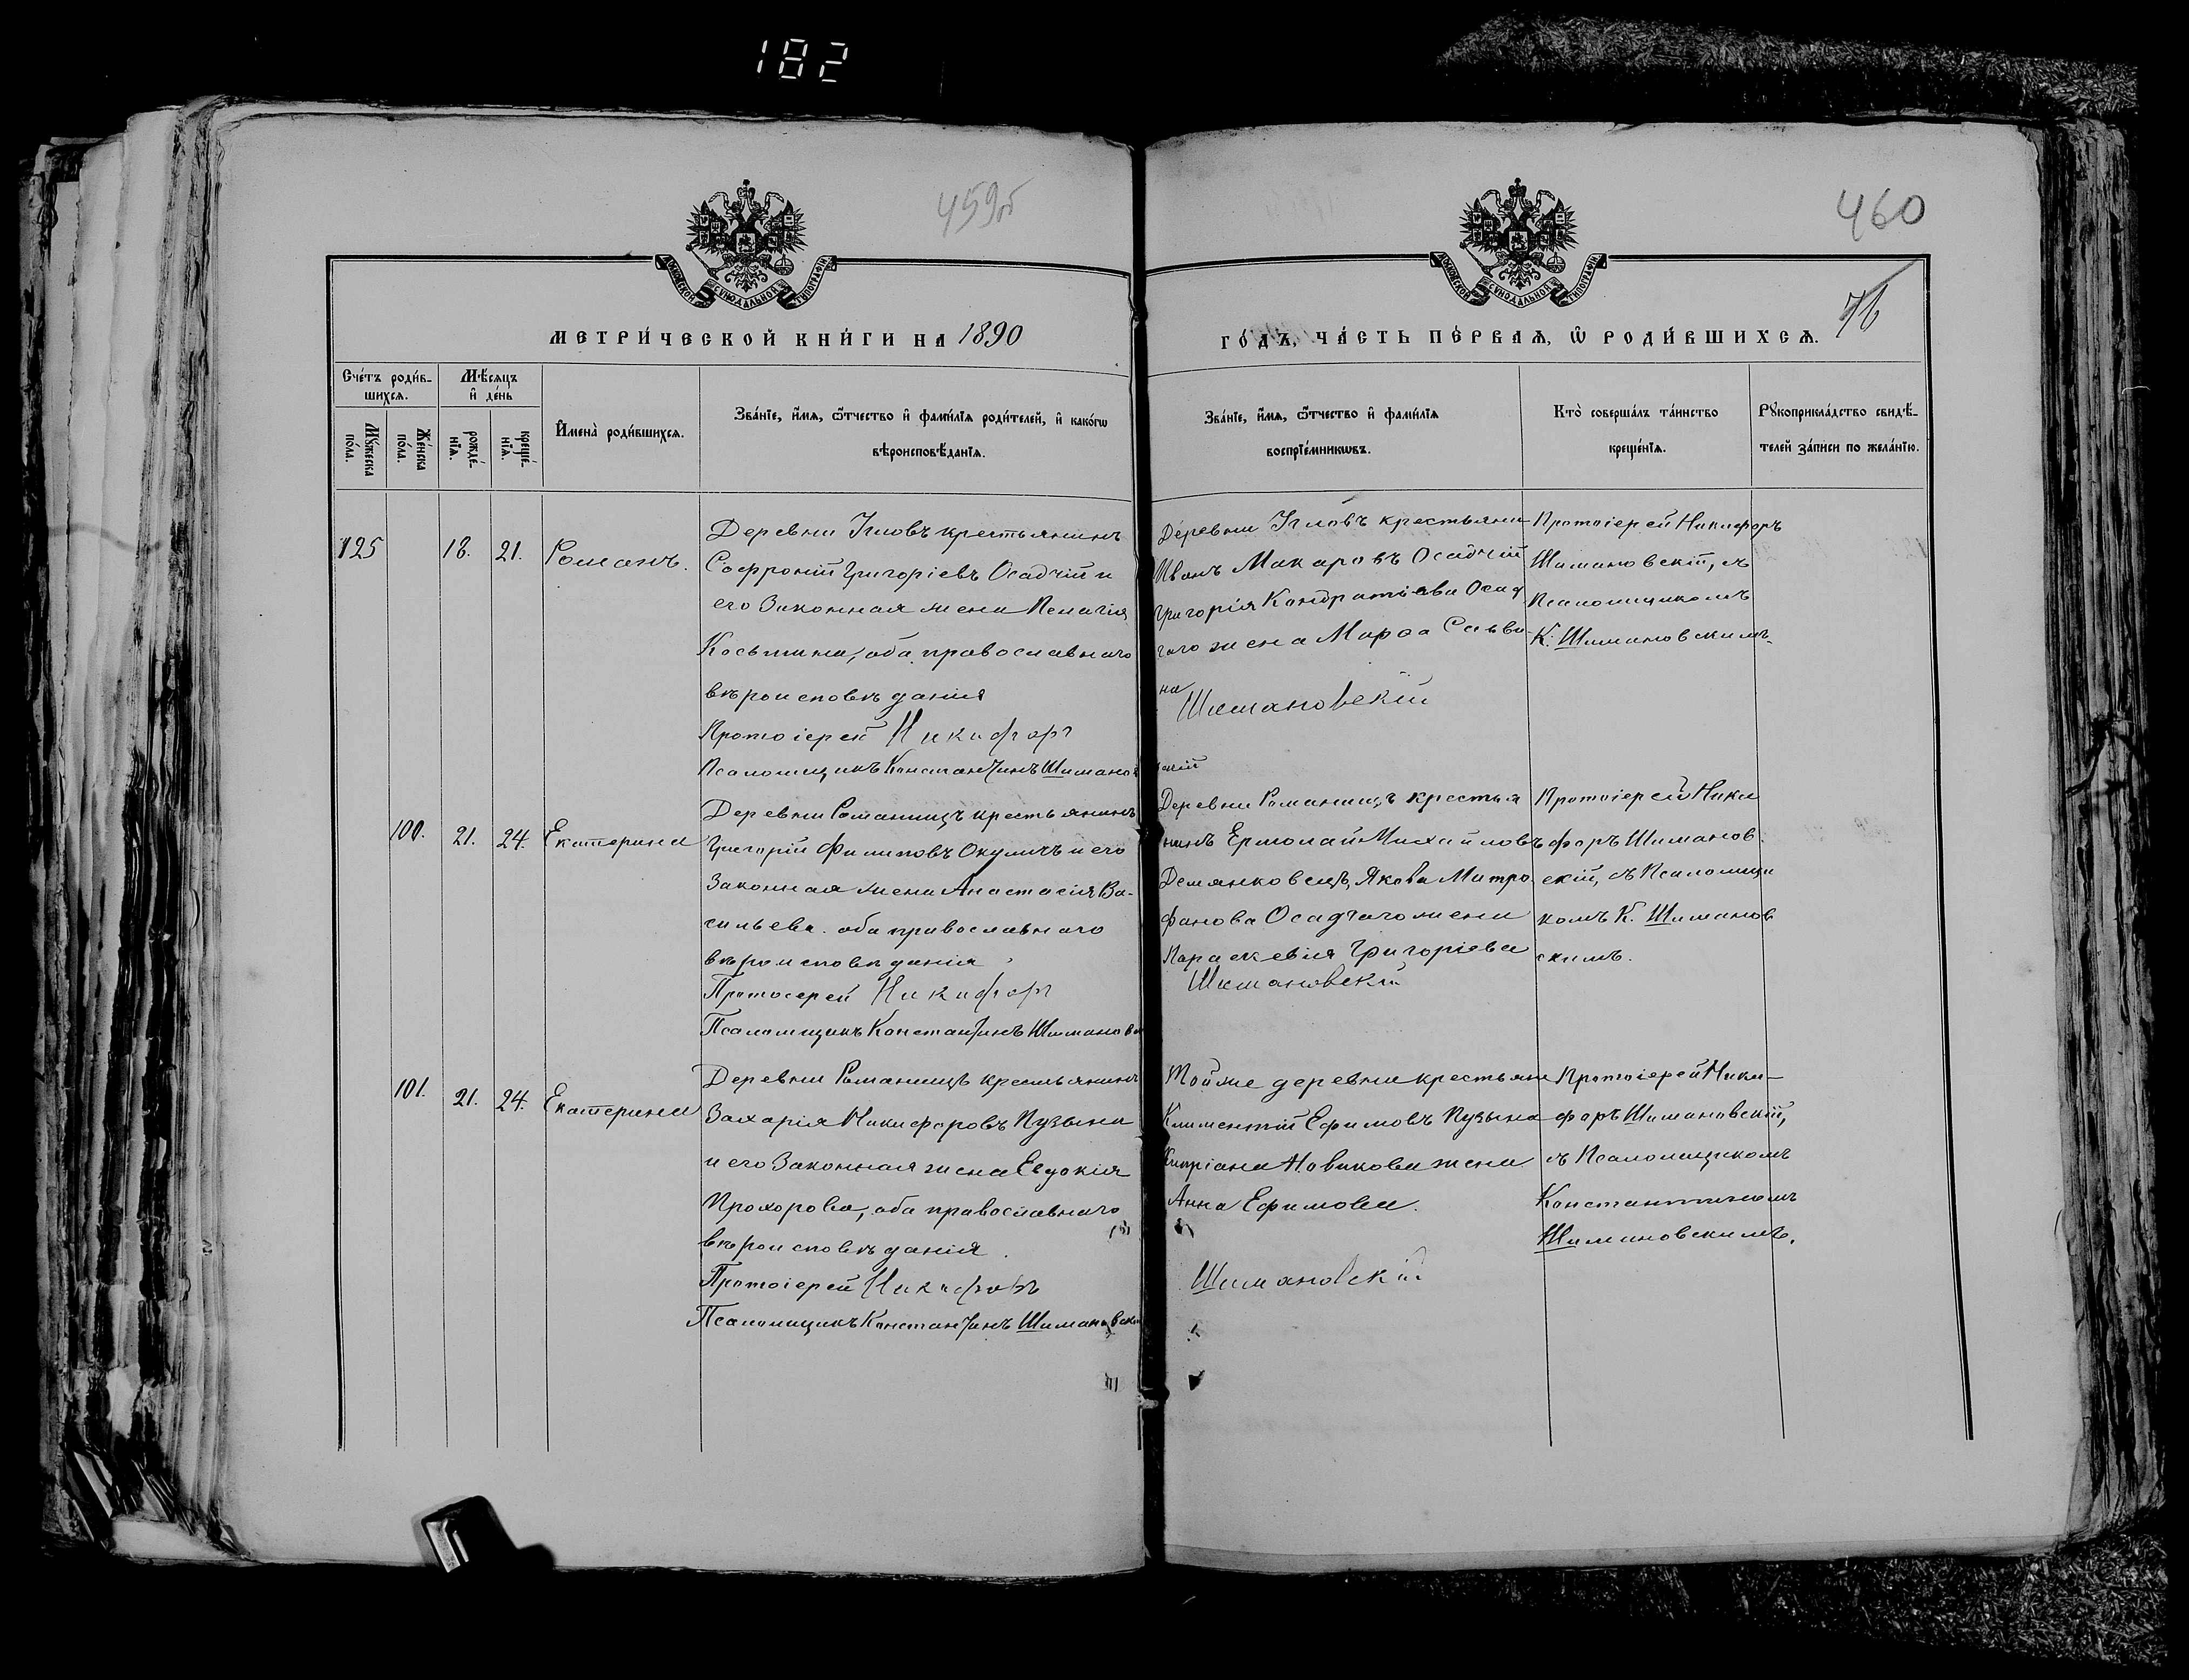 182
459об
460
76
МОСКОВСКОЙ СѴНОДАЛЬНОЙ ТИПОГРАФІИ
МОСКОВСКОЙ СѴНОДАЛЬНОЙ ТИПОГРАФІИ
МЕТРИ́ЧЕСКОЙ КНИ́ГИ НА 1890
ГО́ДЪ, ЧА́СТЬ ПЕ́РВАЯ, Ѽ РОДИ́ВШИХСѦ.
Сче́тъ роди́в-
шихсѧ.
Мѣ́сѧцъ
и҆ де́нь
Мꙋ́жеска
по́ла.
Же́нска
по́ла.
рожде́-
нїѧ.
креще́-
нїѧ.
И҆мена̀ роди́вшихсѧ.
Зва́нїе, и҆́мѧ, ѻ҆́тчество и҆ фами́лїѧ роди́телей, и҆ како́гѡ
вѣроисповѣ́данїѧ.
Зва́нїе, и҆́мѧ, ѻ҆́тчество и҆ фами́лїѧ
воспрїе́мникѡвъ.
Кто̀ соверша́лъ та́инство
креще́нїѧ.
Рꙋкоприкла́дство свидѣ́-
телей за́писи по жела́нїю.
125
18.
21.
Романъ.
Деревни Угловъ крестьянинъ
Софроній Григоріевъ Осадчій и
его законная жена Пелагія
Косьмина, оба православнаго
вѣроисповѣданія
Протоіерей Никифоръ
Псаломщикъ Константинъ Шиманов
Деревни Угловъ крестьяни
Иванъ Макаровъ Осадчій
Григорія Кондратіева Осад
чаго жена Марѳа Савви
на
Шимановскій
скій
Протоіерей Никифоръ
Шимановскій, съ
Псаломщикомъ
К. Шимановскимъ.
100.
21.
24.
Екатерина
Деревни Романищъ крестьянинъ
Григорій Филиповъ Окуличъ и его
законная жена Анастасія Ва-
сильева. оба православнаго
вѣроисповѣданія
Протоіерей Никифоръ
Псаломщикъ Константинъ Шиманов
Деревни Романищъ крестья
нинъ Ермолай Михайловъ
Демянковецъ, Якова Митро
фанова Осадчаго жена
Параскевія Григоріева
Шимановскій
Протоіерей Ники
форъ Шиманов
скій, съ Псаломщи
комъ К. Шиманов
скимъ.
101.
21.
24.
Екатерина
Деревни Романищъ крестьянинъ
Захарія Никифоровъ Пузына
и его законная жена Евдокія
Прохорова, оба православнаго
вѣроисповѣданія.
Протоіерей Никифоръ
Псаломщикъ Константинъ Шимановски
Тойже деревни крестьяни
Климентій Ефимовъ Пузына
Кипріана Новикова жена
Анна Ефимова.
Шимановскій
Протоіерей Ники-
форъ Шимановскій,
съ Псаломщикомъ
Константиномъ
Шимановскимъ.